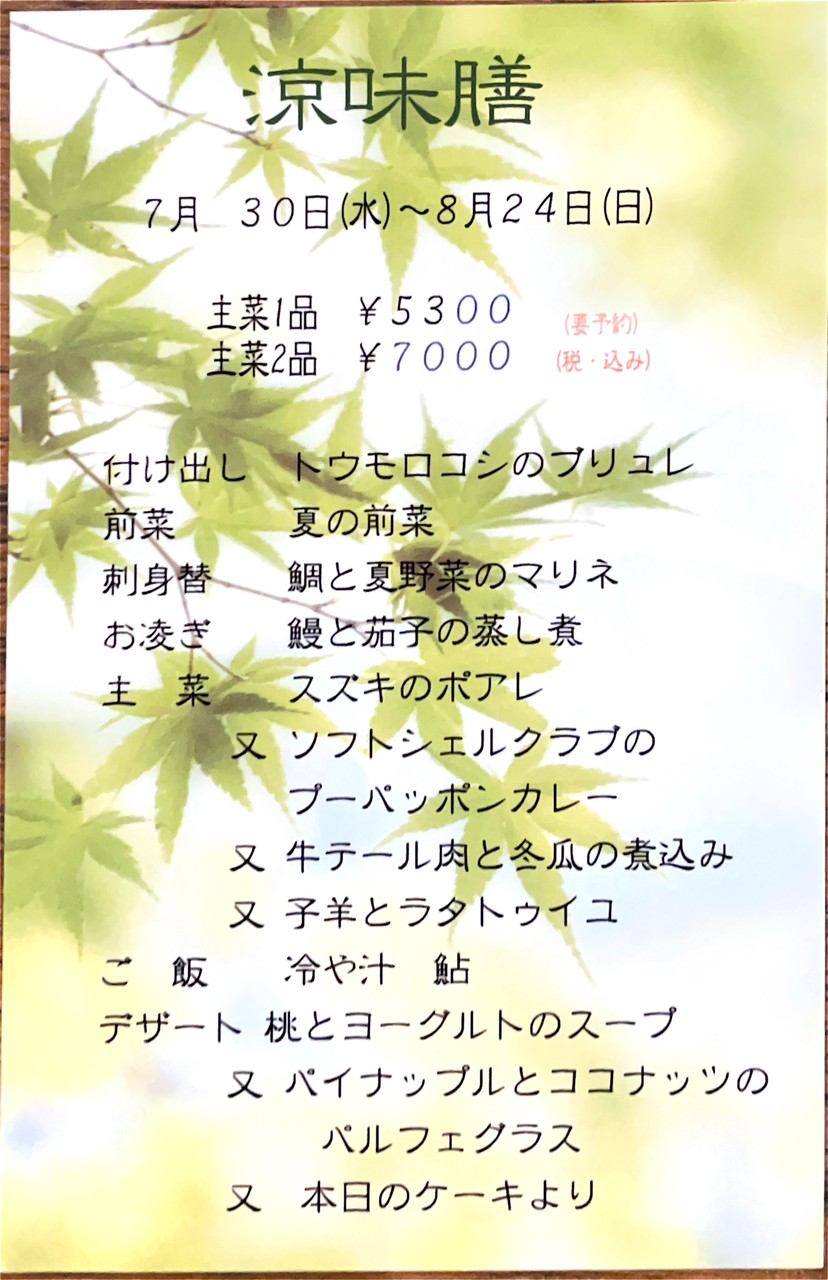 涼味膳
７月　３０日(水)～８月２４日(日)
主菜1品　￥５３００　(要予約)
主菜2品　￥７０００　(税・込み)
付け出し　トウモロコシのブリュレ
前菜　　　夏の前菜
刺身替　　鯛と夏野菜のマリネ
お凌ぎ　　鰻と茄子の蒸し煮
主　菜　　スズキのポアレ
又　ソフトシェルクラブの
プーパッポンカレー
又　牛テール肉と冬瓜の煮込み
又　子羊とラタトゥイユ
ご　飯　　冷や汁　鮎
デザート　桃とヨーグルトのスープ
又　パイナップルとココナッツの
パルフェグラス
又　本日のケーキより